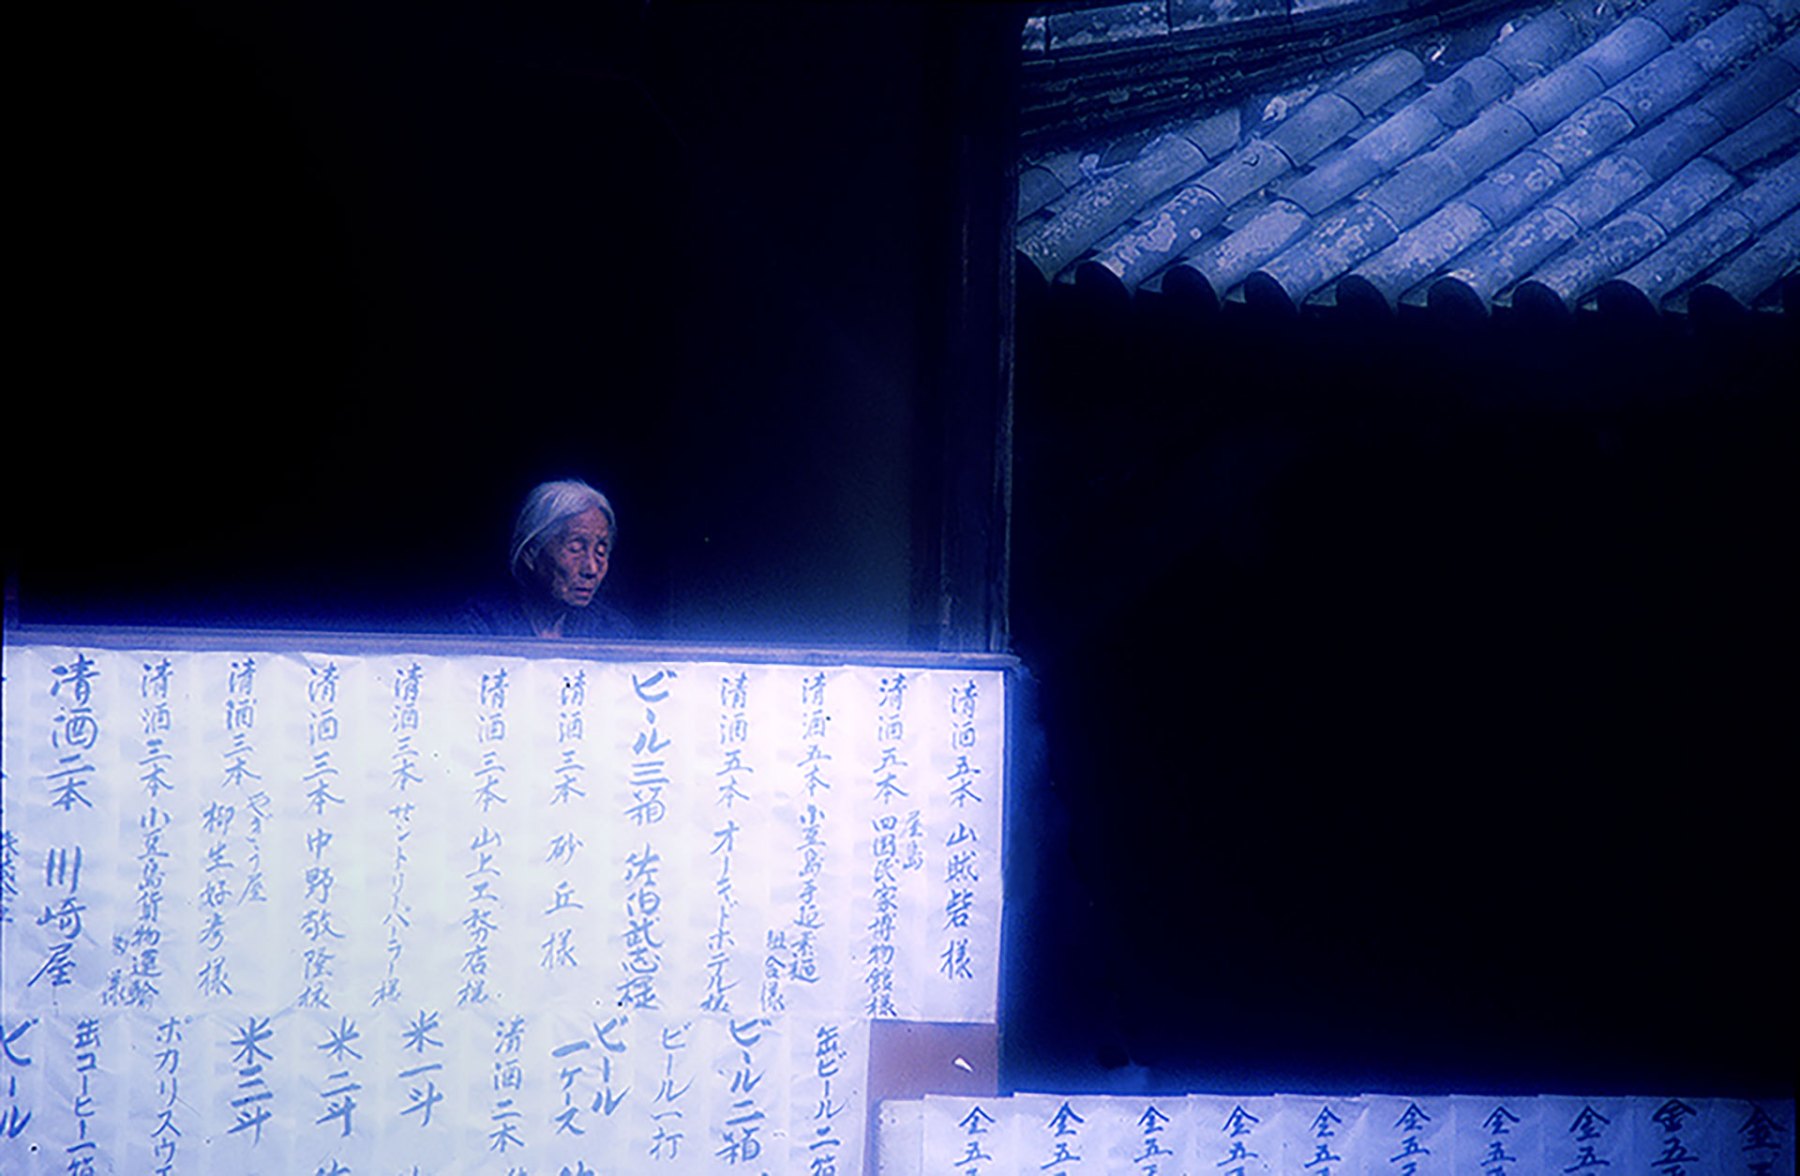 清酒五本 山賊砦様
清酒五本 屋島 四国民家博物館様
清酒五本 小豆島手延素麺 組合様
清酒五本 オーキドホテル様
ビール三箱 佐伯武志様
清酒三本 砂丘様
清酒三本 山上工務店様
清酒三本 サントリーパーラー様
清酒三本 中野敬隆様
清酒三本 やぎう屋 柳生好考様
清酒三本 小豆島貨物運輸
清酒二本 川崎屋
缶ビール二箱
ビール二箱
ビール一打
ビール一ケース
清酒二本
米一斗
米二斗
米三斗
ポカリスウエ
缶コーヒー一箱
ビール
金
金五
金五
金五
金五
金五
金五
金五
金五
金五